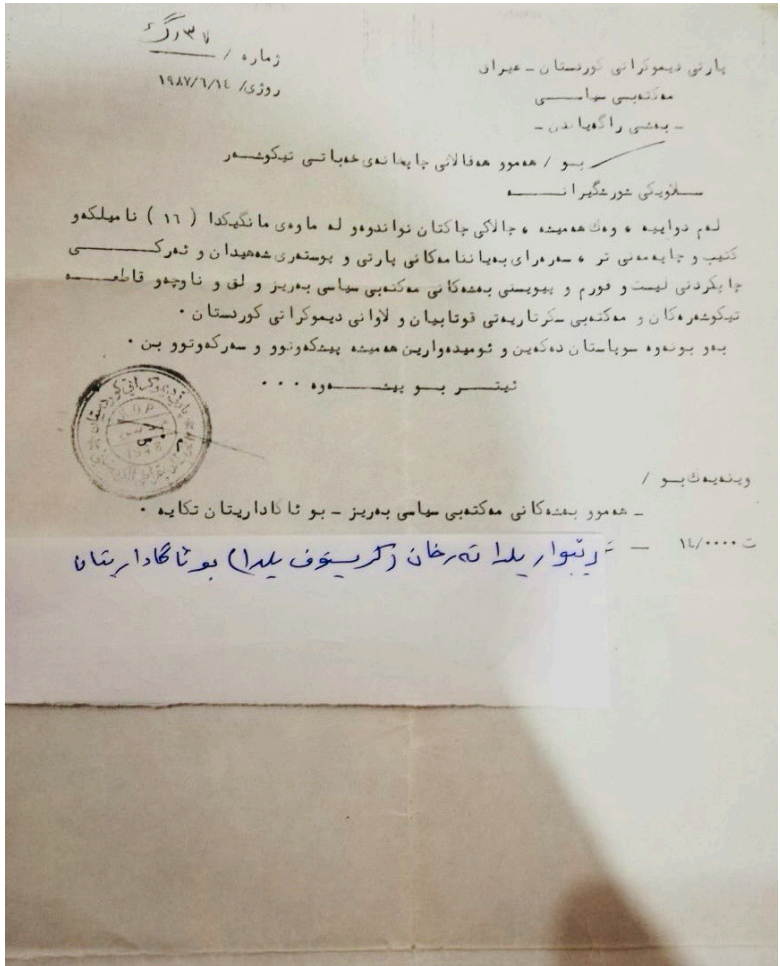 ژماره / ٧٣ رگ
روژی/ ١٩٨٧/٦/١٤
پارتی دیموکراتی کوردستان ـ عیراق
مەکتەبی سیاسی
ـ بەشی راگەیاندن ـ
بو / هەموو هەڤالانی چاپخانەی خەباتی تیکوشەر
سلاویکی شورشگیرانە
لەم دواییە ، وەك هەمیشە ، چالاکی چاکتان نواندوەو لە ماوەی مانگیکدا ( ١٦ ) نامیلکەو
کتیب و چاپەمەنی تر ، سەرەرای بەیاننامەکانی پارتی و پوستەری شەهیدان و ئەرکی
چاپکردنی لیست و فورم و پیویستی بەشەکانی مەکتەبی سیاسی بەریز و لق و ناوچەو قاطعە
تیکوشەرەکان و مەکتەبی سکرتاریەتی قوتابیان و لاوانی دیموکراتی کوردستان .
بەو بونەوە سوپاستان دەکەین و ئومیدەوارین هەمیشە پیشکەوتوو و سەرکەوتوو بن .
ئیتر بو پیشەوە . . .
وینەیەك بو /
ـ هەموو بەشەکانی مەکتەبی سیاسی بەریز ـ بو ئاگاداریتان تکایە .
ت ١٤/٠٠٠٠ ـ
ریبوار یلدا تەرخان (کریستوف یلدا) بو ئاگاداریتان